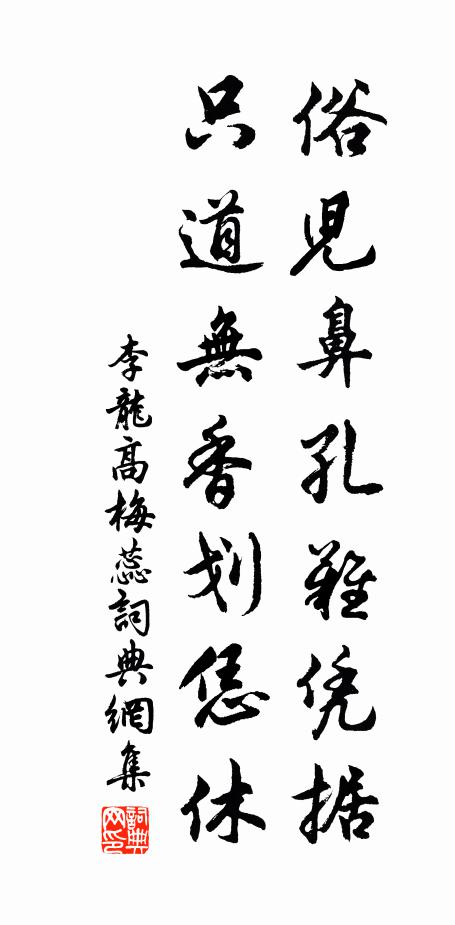 俗児鼻孔難凭据
只道無香划恁休
李龍高梅蕊詞典網集
詞典网印